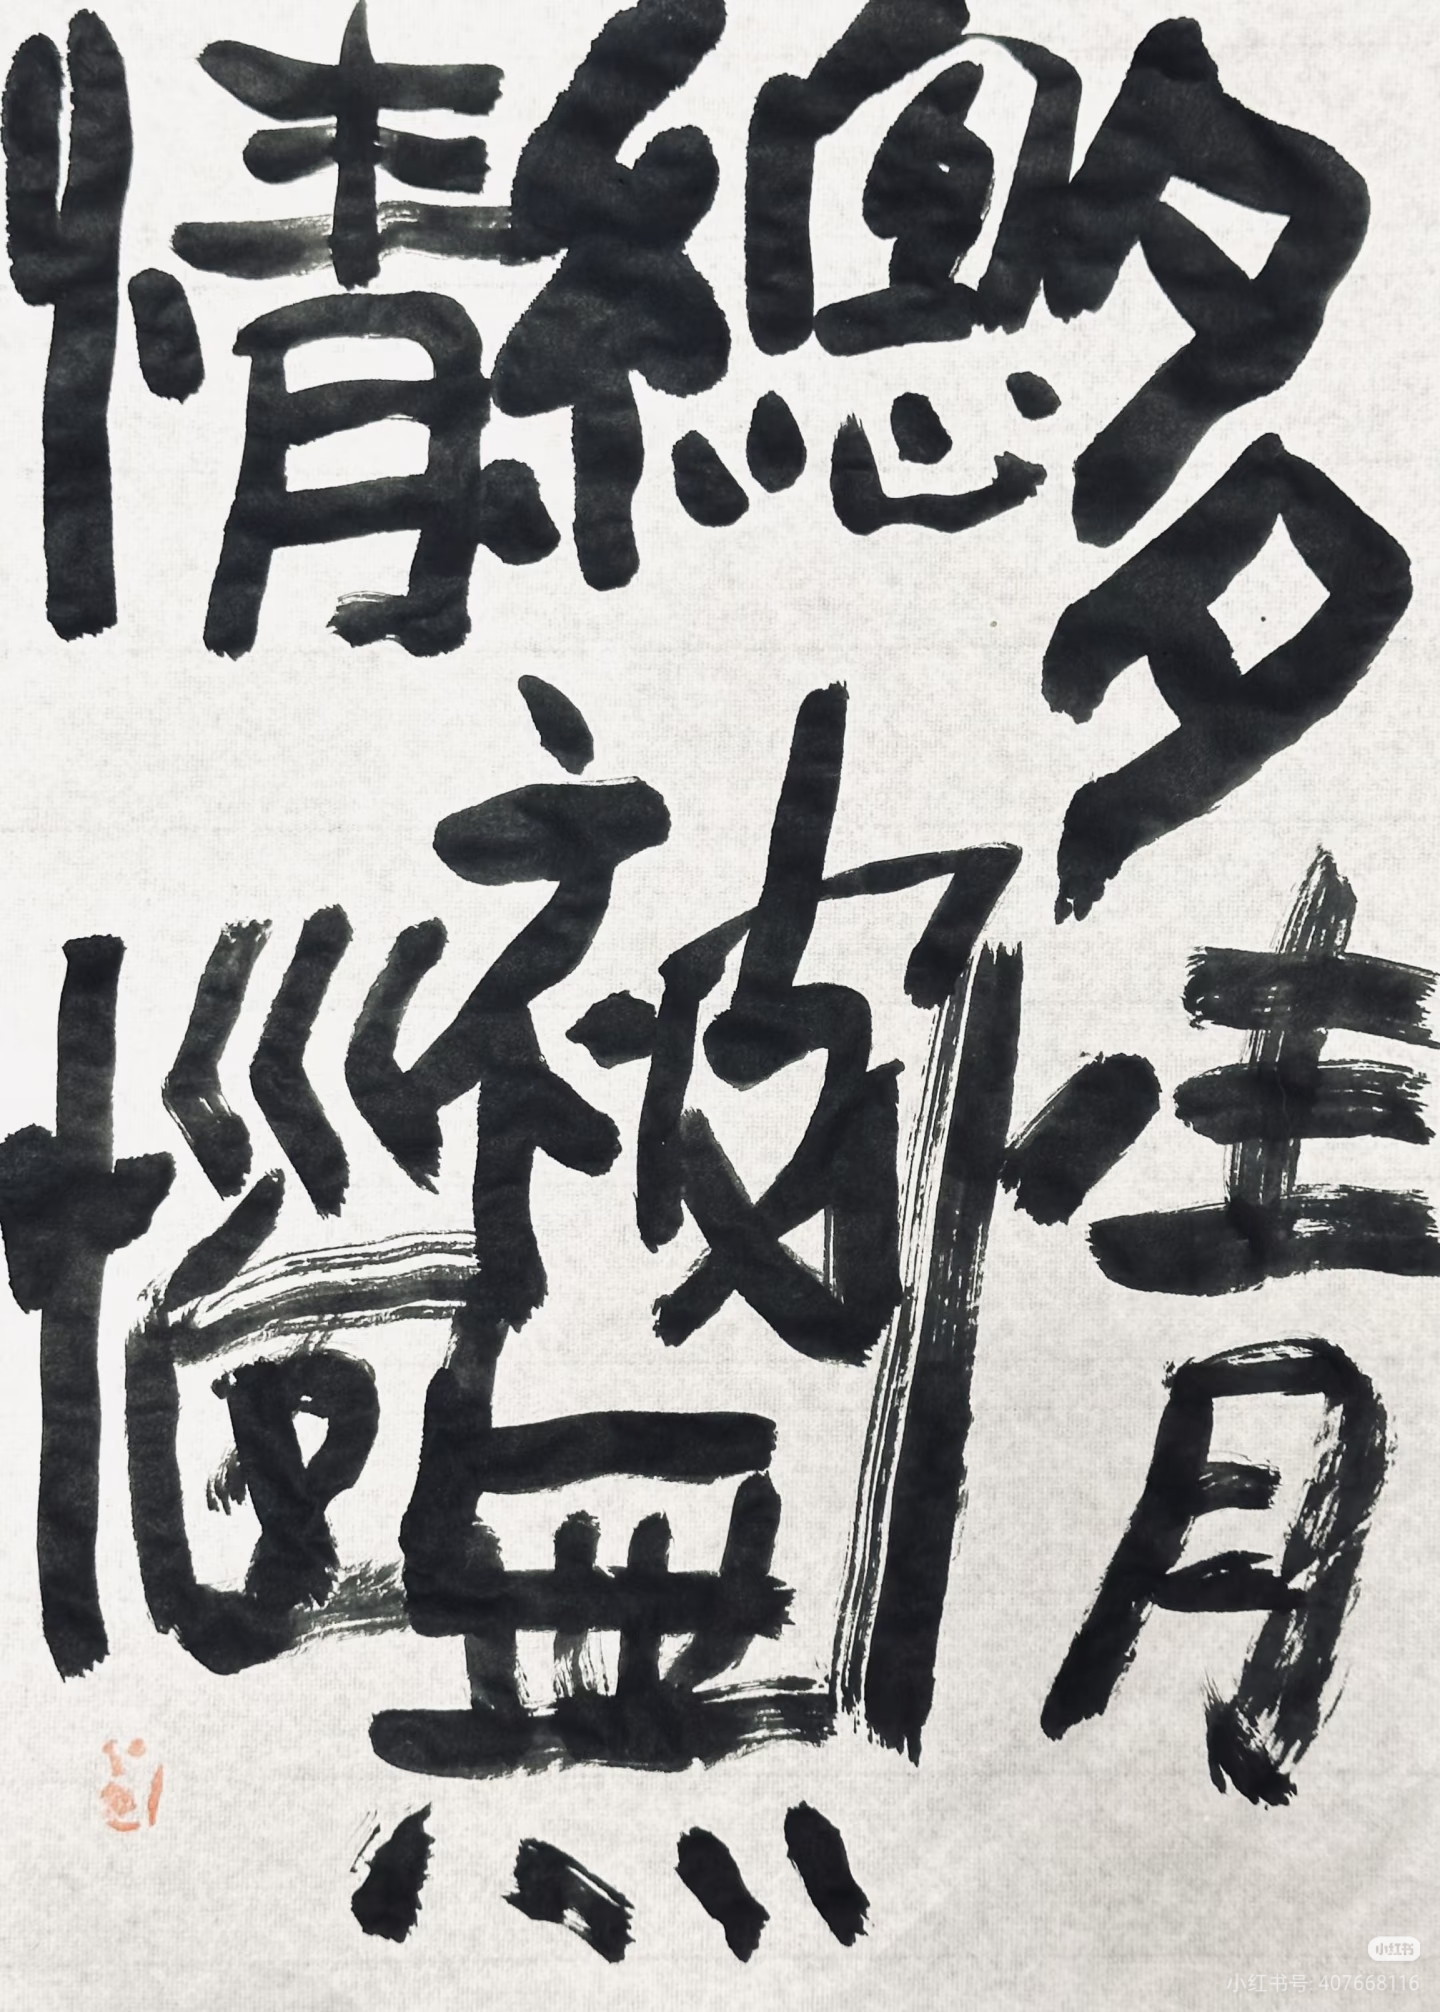 多情
總被無
情惱
小红书
小红书号: 407668116